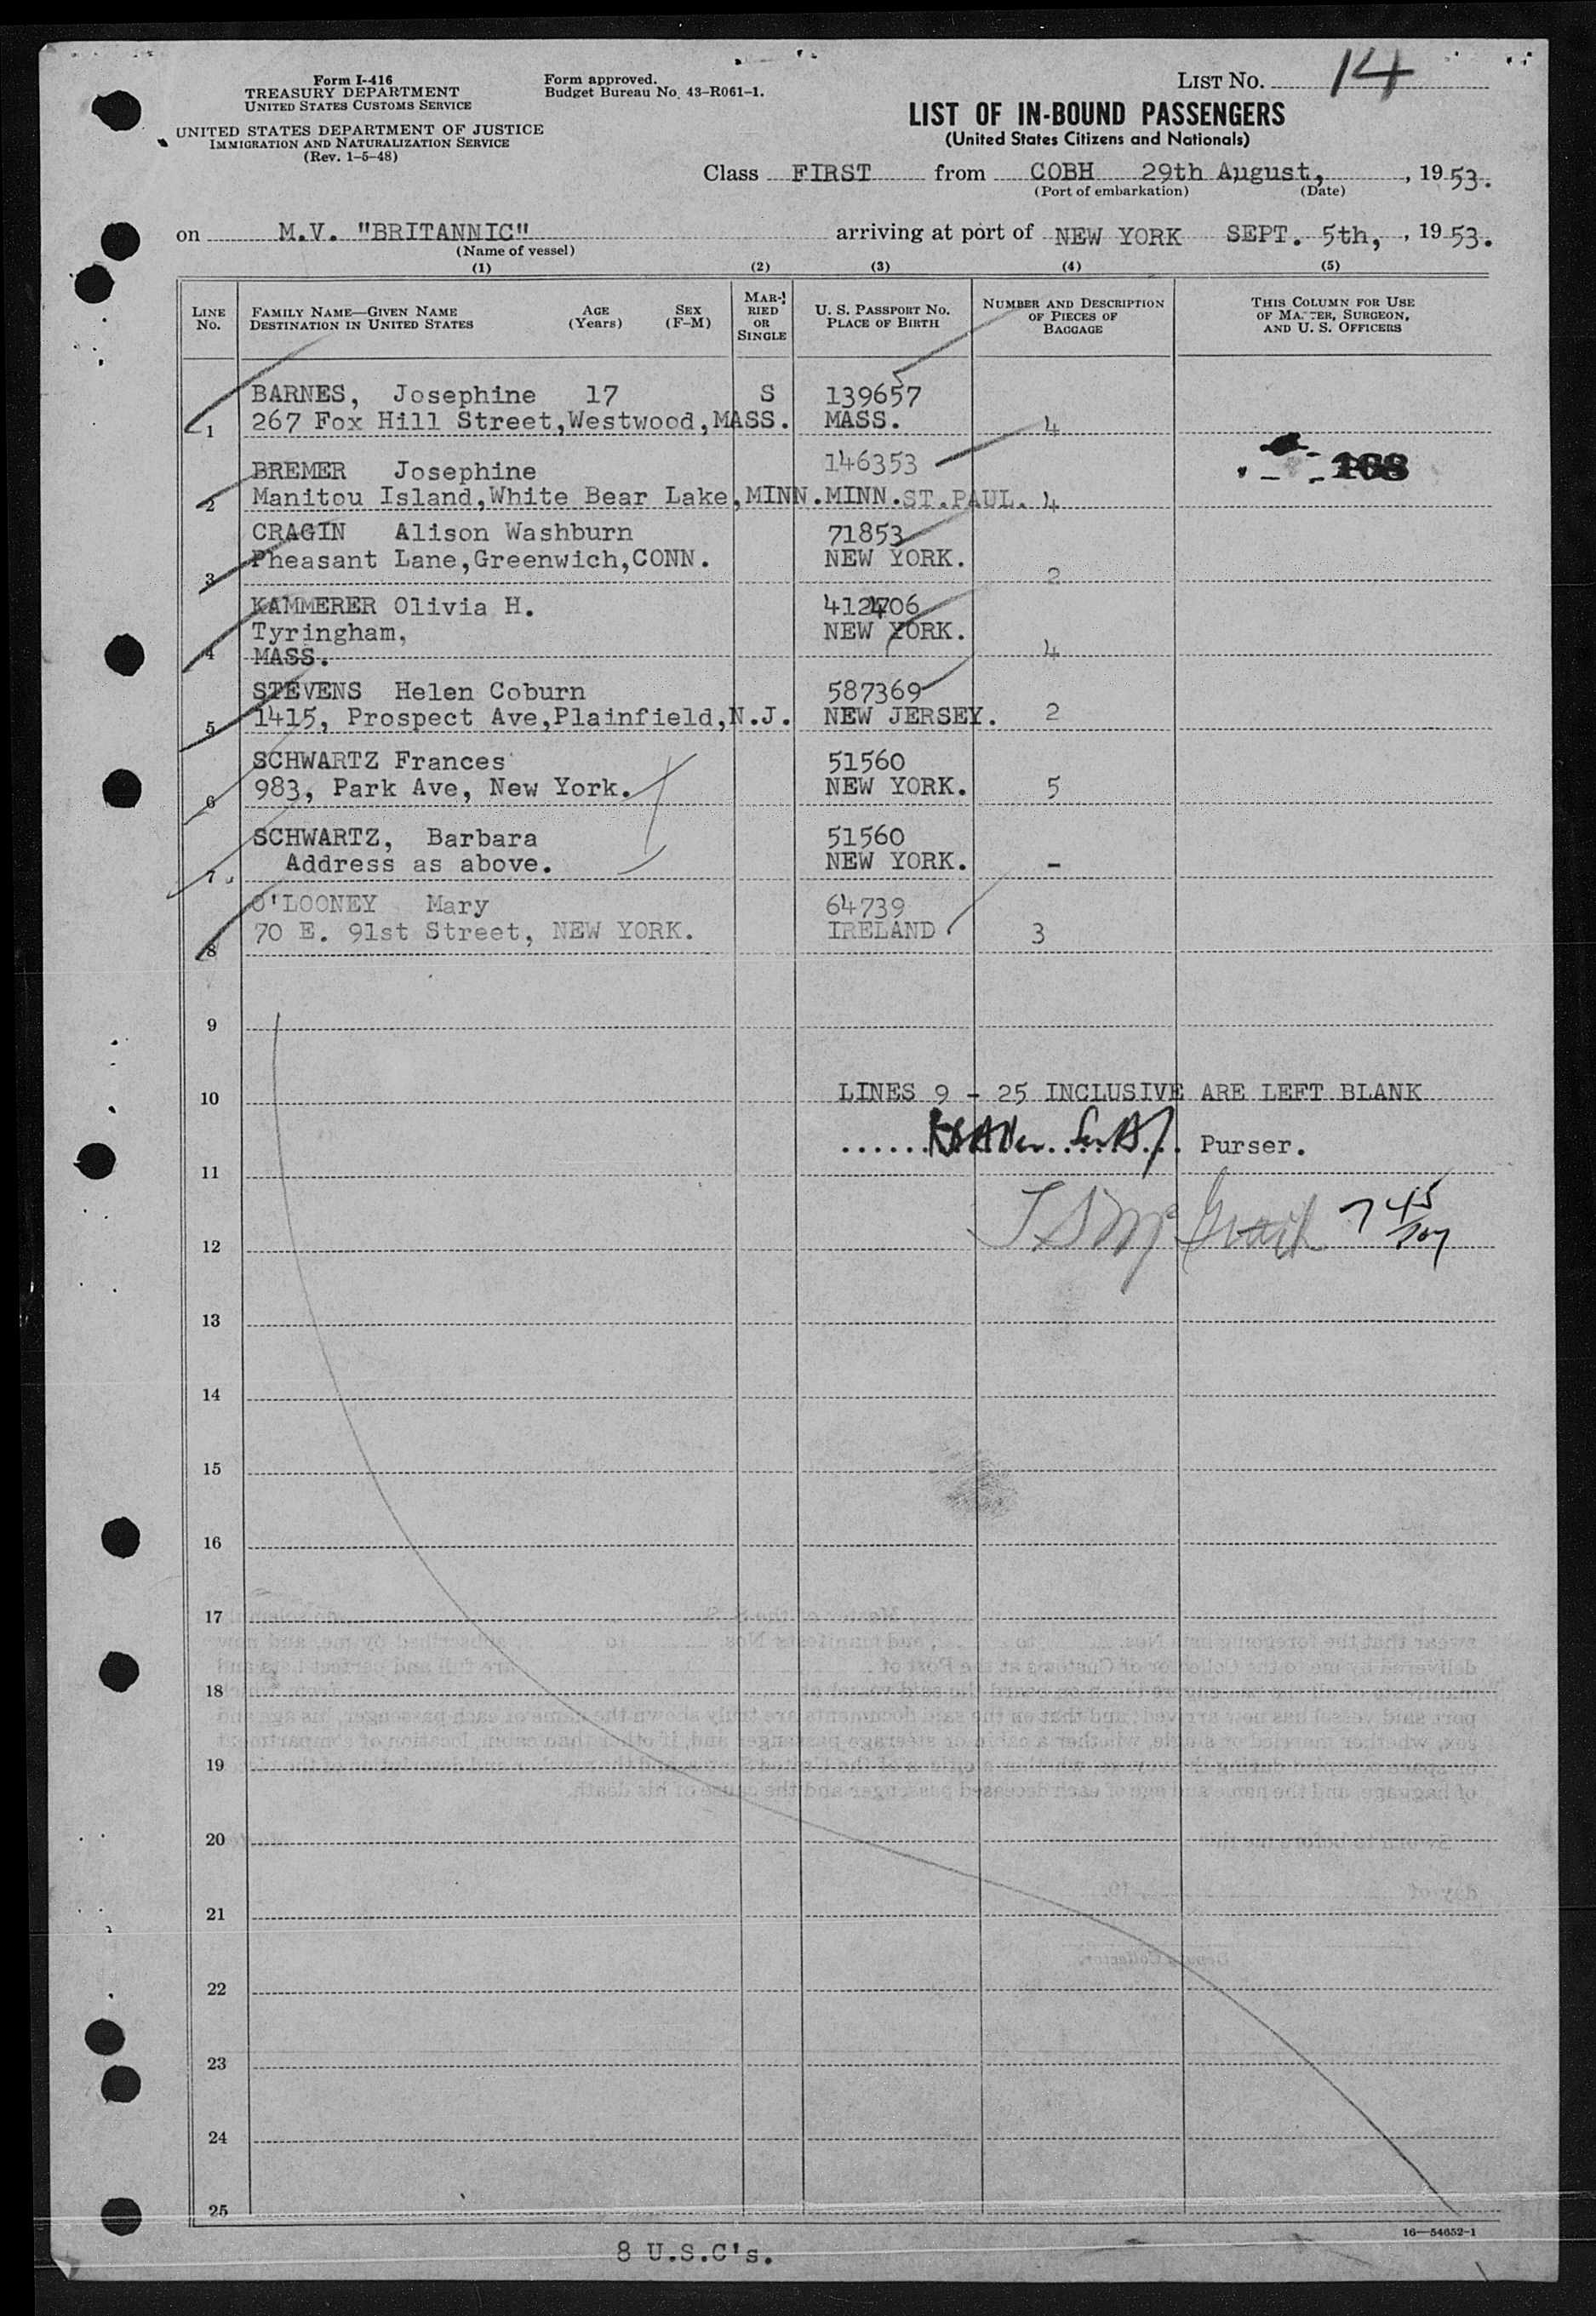 Form I-416
TREASURY DEPARTMENT
UNITED STATES CUSTOMS SERVICE
UNITED STATES DEPARTMENT OF JUSTICE
IMMIGRATION AND NATURALIZATION SERVICE
(Rev. 1-5-48)
Form approved.
Budget Bureau No. 43-R061-1.
LIST NO. 14
LIST OF IN-BOUND PASSENGERS
(United States Citizens and Nationals)
Class FIRST from COBH 29th August, , 19 53.
(Port of embarkation) (Date)
on M.V. "BRITANNIC" arriving at port of NEW YORK SEPT. 5th, , 19 53.
(Name of vessel)
(1) (2) (3) (4) (5)
LINE No. FAMILY NAME—GIVEN NAME DESTINATION IN UNITED STATES AGE (Years) SEX (F-M) MARRIED OR SINGLE U. S. PASSPORT NO. PLACE OF BIRTH NUMBER AND DESCRIPTION OF PIECES OF BAGGAGE THIS COLUMN FOR USE OF MASTER, SURGEON, AND U. S. OFFICERS
BARNES, Josephine 17 S 139657
1 267 Fox Hill Street,Westwood,MASS. MASS. 4
BREMER Josephine 146353 168
2 Manitou Island,White Bear Lake,MINN.MINN.ST.PAUL. 4
CRAGIN Alison Washburn 71853
Pheasant Lane,Greenwich,CONN. NEW YORK.
3 2
KAMMERER Olivia H. 412406
Tyringham, NEW YORK.
4 MASS. 4
STEVENS Helen Coburn 587369
5 1415, Prospect Ave,Plainfield,N.J. NEW JERSEY. 2
SCHWARTZ Frances 51560
6 983, Park Ave, New York. NEW YORK. 5
SCHWARTZ, Barbara 51560
7 Address as above. NEW YORK. -
O'LOONEY Mary 64739
8 70 E. 91st Street, NEW YORK. IRELAND 3
9
10 LINES 9 - 25 INCLUSIVE ARE LEFT BLANK
Purser.
11
12
13
14
15
16
17
18
19
20
21
22
23
24
25
16—54652-1
8 U.S.C's.